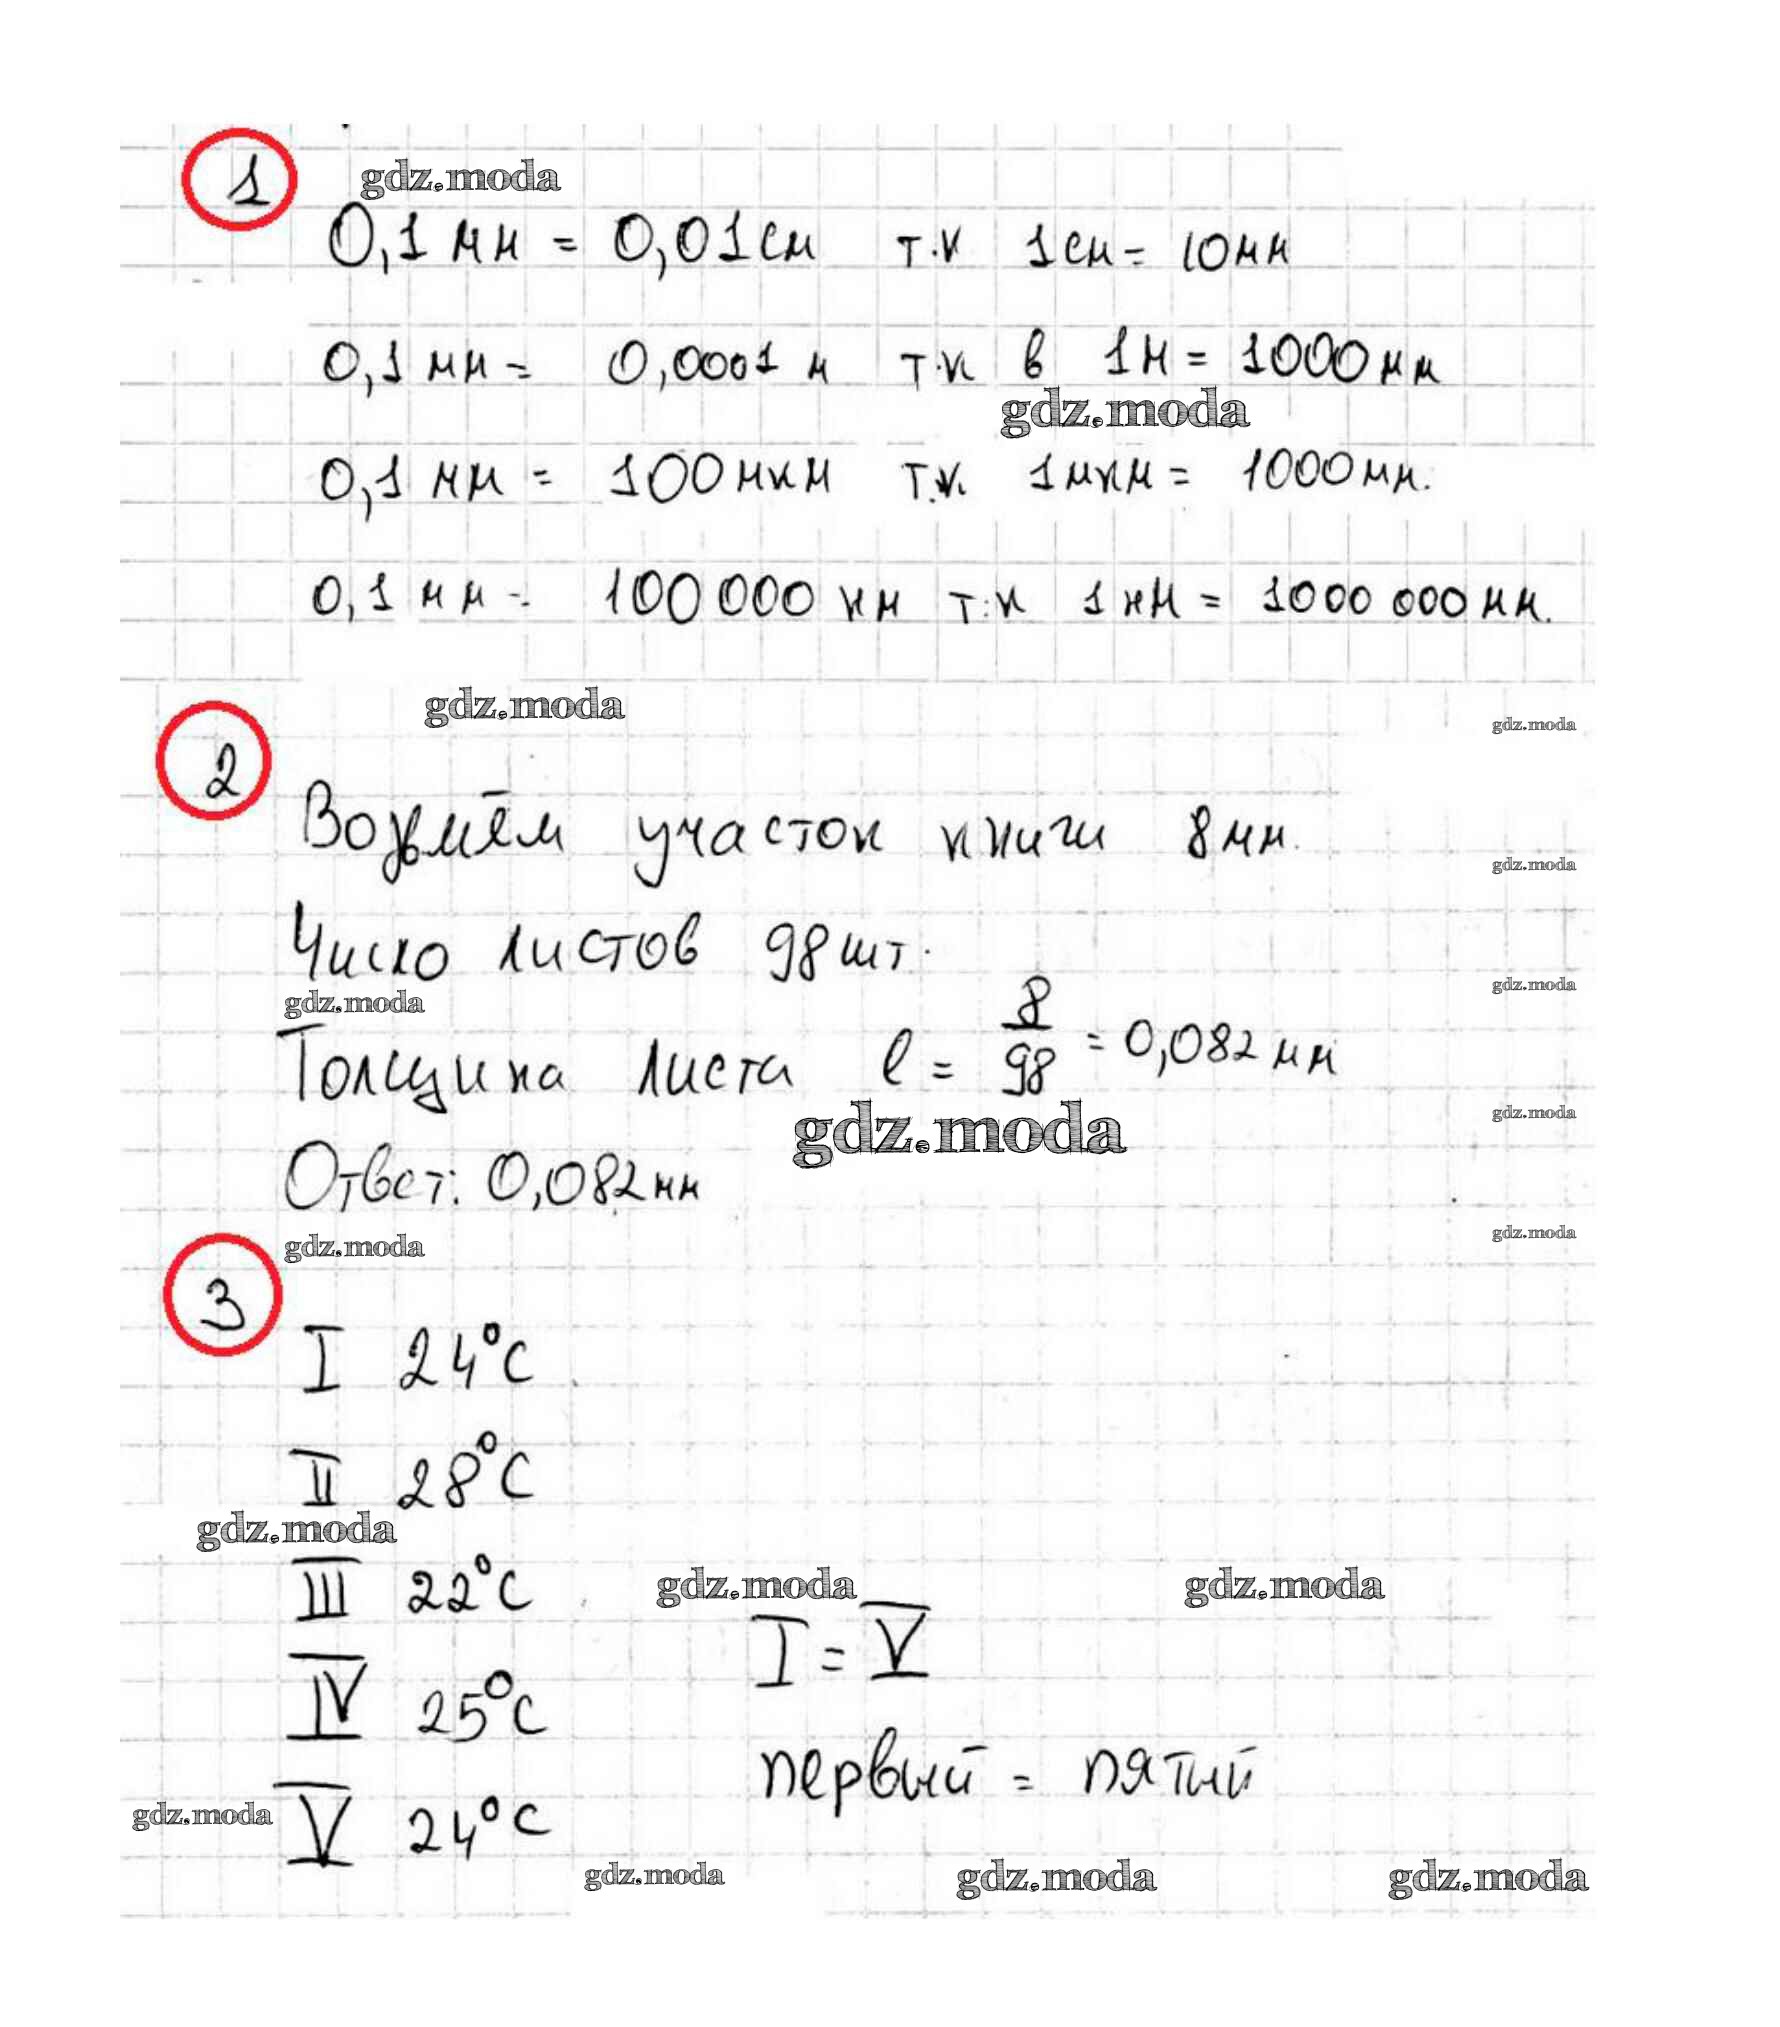 1
gdz.moda
0,1 мм = 0,01 см т.к 1 см = 10 мм
0,1 мм = 0,0001 м т.к в 1 м = 1000 мм
gdz.moda
0,1 мм = 100 мкм т.к. 1 мкм = 1000 мм.
0,1 мм = 100 000 нм т.к 1 нм = 1000 000 мм.
gdz.moda
gdz.moda
2
Возьмём участок книги 8 мм.
gdz.moda
Число листов 98 шт.
gdz.moda
gdz.moda
Толщина листа l = 8/98 = 0,082 мм
gdz.moda
gdz.moda
Ответ: 0,082 мм
gdz.moda
gdz.moda
3
I 24°C
II 28°C
gdz.moda
III 22°C
gdz.moda
gdz.moda
I = V
IV 25°C
первый = пятый
gdz.moda
V 24°C
gdz.moda
gdz.moda
gdz.moda